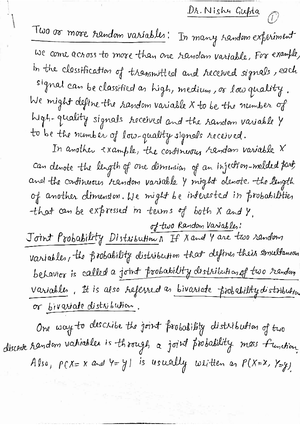 Dr. Nishu Gupta
1
Two or more random variables: In many random experiment
we come across to more than one random variable. For example,
in the classification of transmitted and received signals, each
signal can be classified as high, medium, or low quality.
We might define the random variable X to be the number of
high-quality signals received and the random variable Y
to be the number of low-quality signals received.
In another example, the continuous random variable X
can denote the length of one dimension of an injection-molded part
and the continuous random variable Y might denote the length
of another dimension. We might be interested in probabilities
that can be expressed in terms of both X and Y.
of two Random Variables:
Joint Probability Distribution: If X and Y are two random
variables, the probability distribution that defines their simultaneous
behavior is called a joint probability distribution of two random
variables. It is also referred as bivariate probability distribution
or bivariate distribution.
One way to describe the joint probability distribution of two
discrete random variables is through a joint probability mass function.
Also, P(X=x and Y=y) is usually written as P(X=x, Y=y).